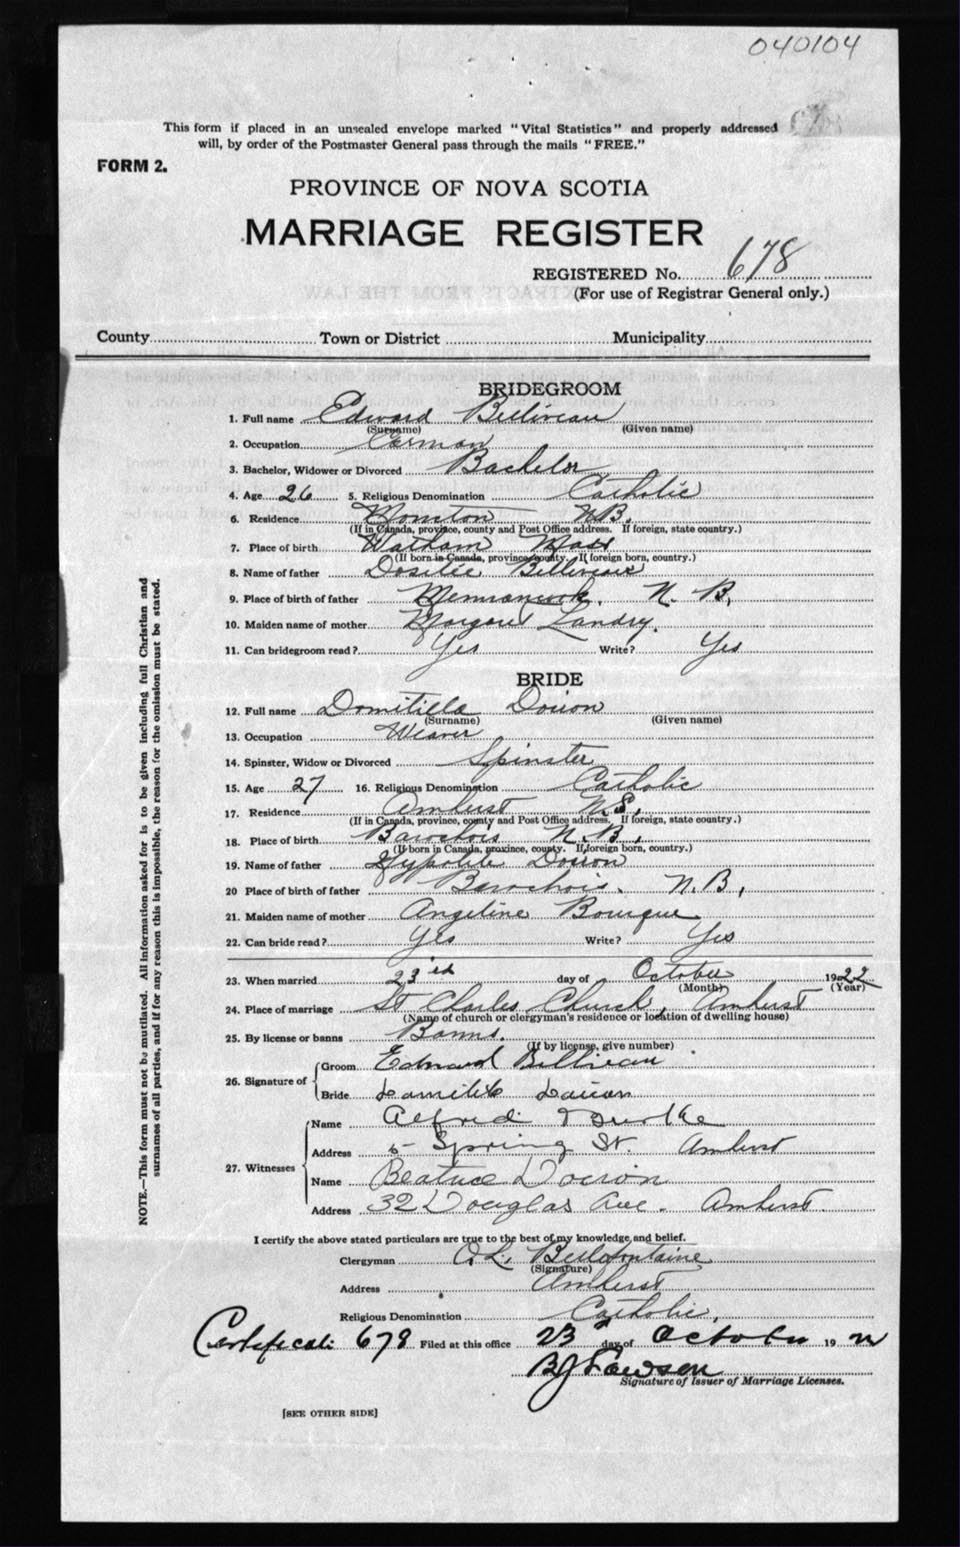 040104
This form if placed in an unsealed envelope marked "Vital Statistics" and properly addressed
will, by order of the Postmaster General pass through the mails "FREE."
FORM 2.
PROVINCE OF NOVA SCOTIA
MARRIAGE REGISTER
REGISTERED No. 678
(For use of Registrar General only.)
County Town or District Municipality
BRIDEGROOM
1. Full name Edward Belliveau
(Surname) (Given name)
2. Occupation Carman
3. Bachelor, Widower or Divorced Bachelor
4. Age 26 5. Religious Denomination Catholic
6. Residence Moncton N.B.
(If in Canada, province, county and Post Office address. If foreign, state country.)
7. Place of birth Waltham Mass
(If born in Canada, province, county. If foreign born, country.)
8. Name of father Dosilee Belliveau
9. Place of birth of father Memramcook. N. B.
10. Maiden name of mother Margaret Landry.
11. Can bridegroom read? Yes Write? Yes
BRIDE
12. Full name Domitilla Doiron
(Surname) (Given name)
13. Occupation Weaver
14. Spinster, Widow or Divorced Spinster
15. Age 27 16. Religious Denomination Catholic
17. Residence Amherst N.S.
(If in Canada, province, county and Post Office address. If foreign, state country.)
18. Place of birth Barochois N.B.
(If born in Canada, province, county. If foreign born, country.)
19. Name of father Hypolite Doiron
20 Place of birth of father Barochois. N.B.
21. Maiden name of mother Angeline Bourque
22. Can bride read? Yes Write? Yes
23. When married 23rd day of October 1922
(Month) (Year)
24. Place of marriage St Charles Church, Amherst
(Name of church or clergyman's residence or location of dwelling house)
25. By license or banns Banns.
(If by license, give number)
26. Signature of Groom Edward Belliveau
Bride Doiron
27. Witnesses Name Alfred Bourke
Address 5 Spring St. Amherst
Name Beatrice Doiron
Address 32 Douglas Ave. Amherst.
I certify the above stated particulars are true to the best of my knowledge and belief.
Clergyman
(Signature)
Address Amherst
Religious Denomination Catholic.
Certificate 678 Filed at this office 23 day of October 1922
Signature of Issuer of Marriage Licenses.
[SEE OTHER SIDE]
NOTE.—This form must not be mutilated. All information asked for is to be given including full Christian and
surnames of all parties, and if for any reason this is impossible, the reason for the omission must be stated.